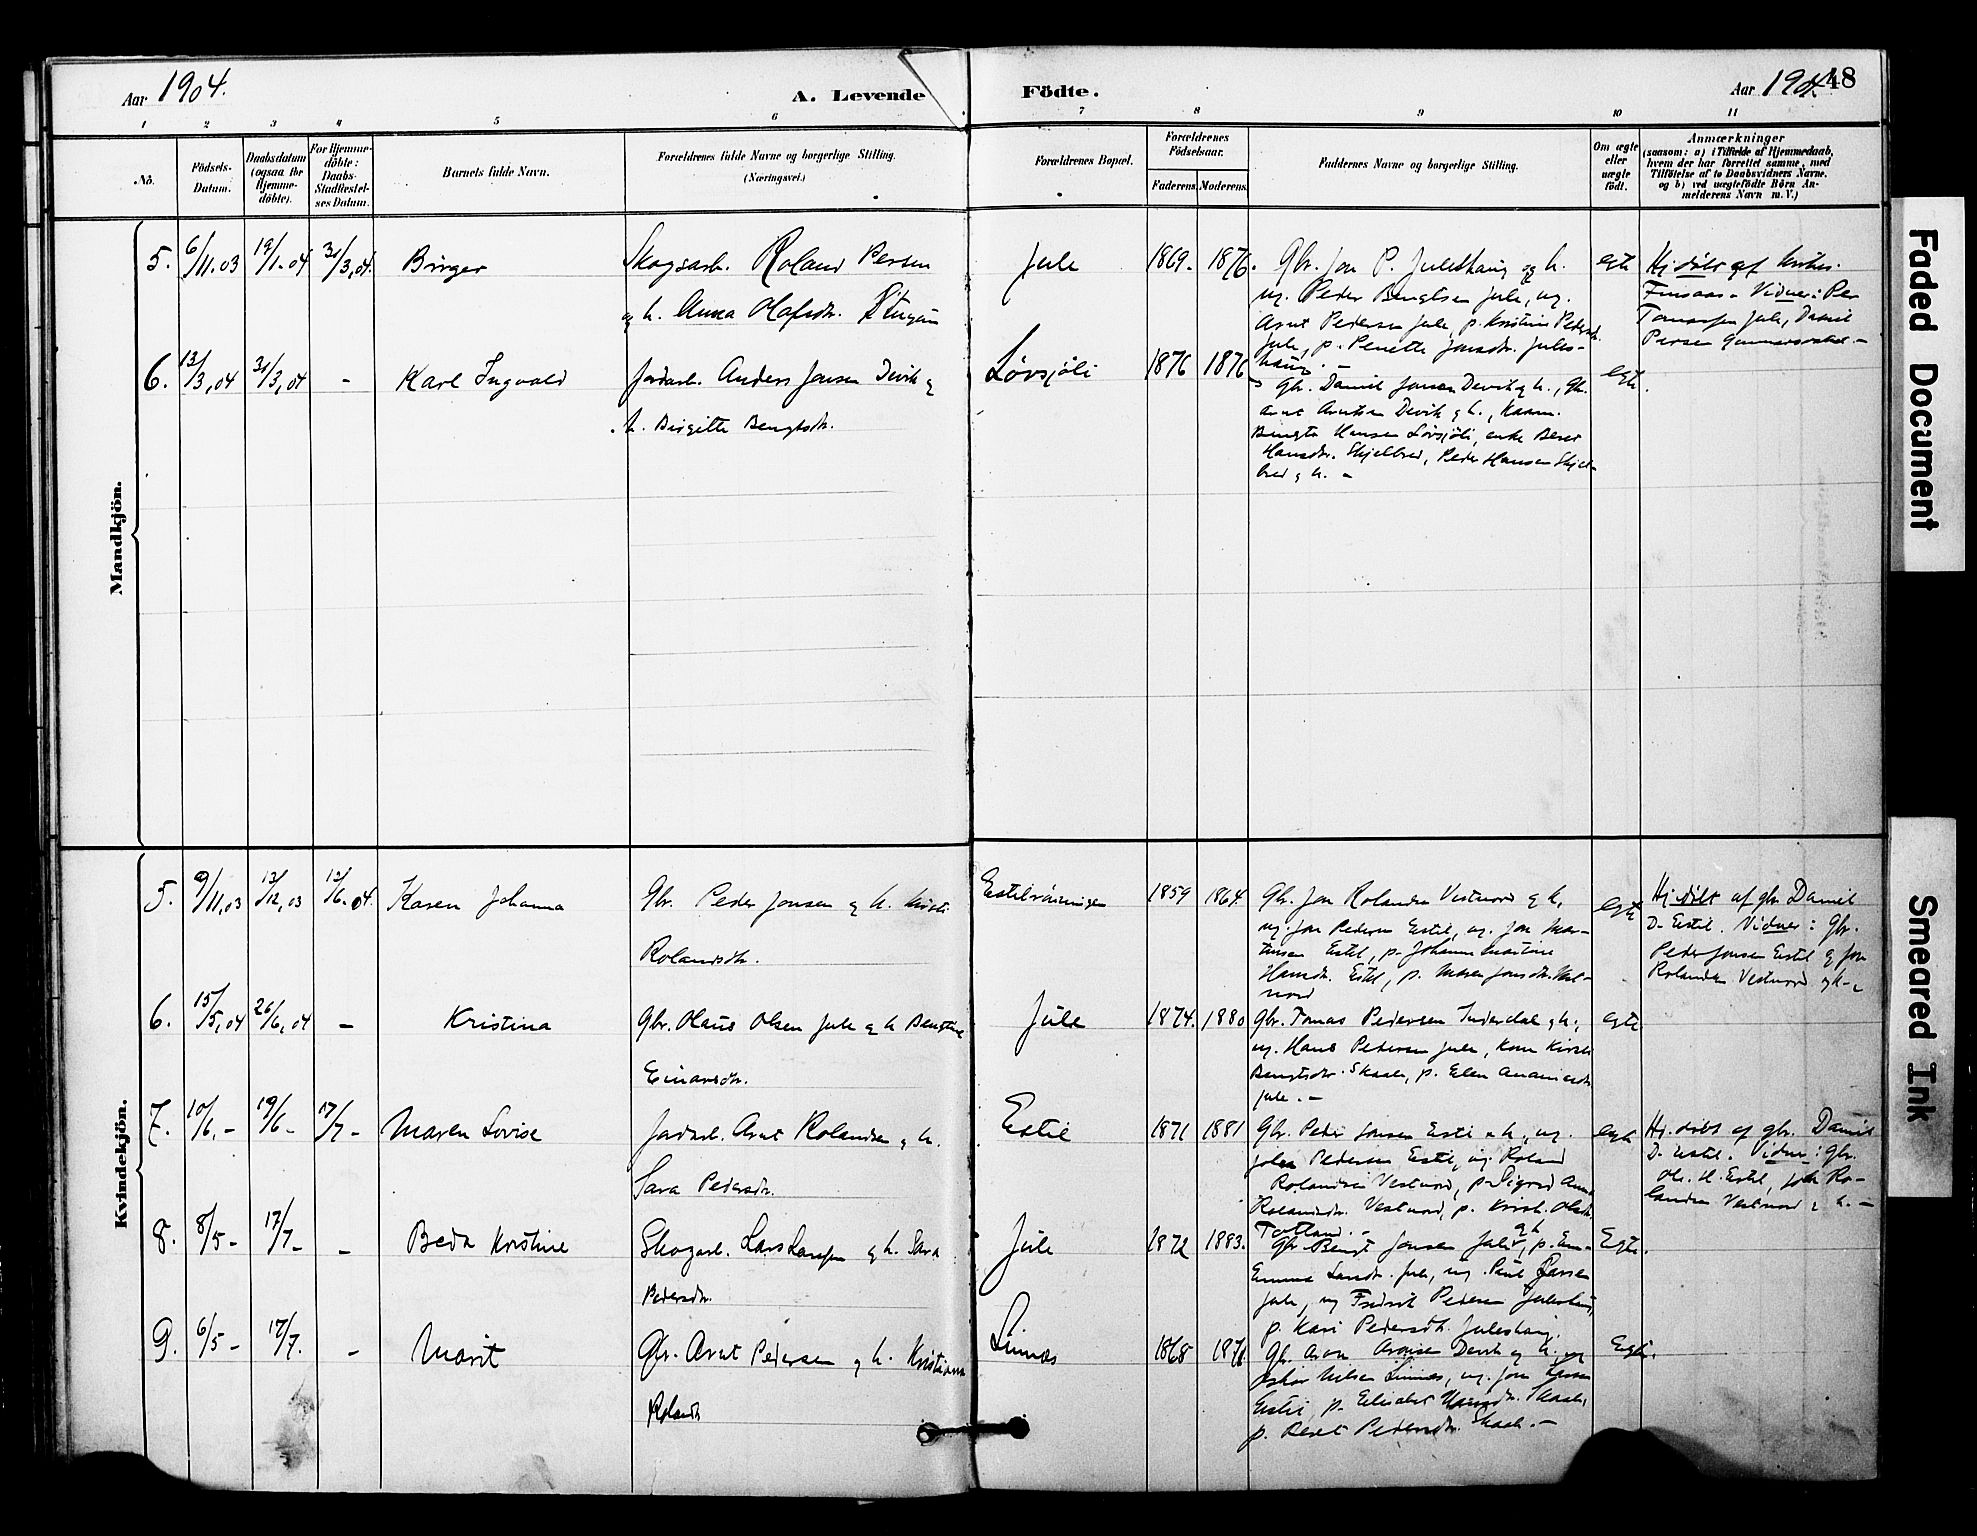 Aar 1904.
A. Levende
Födte.
Aar 1904.
48
1 2 3 4 5 6 7 8 9 10 11
No.
Födsels-
Datum.
Daabsdatum
(ogsaa for
Hjemme-
döbte).
For Hjemme-
döbte:
Daabs-
Stadfæstel-
ses Datum.
Barnets fulde Navn.
Forældrenes fulde Navne og borgerlige Stilling.
(Næringsvei.)
Forældrenes Bopæl.
Forældrenes
Födselsaar.
Faderens.
Moderens.
Faddernes Navne og borgerlige Stilling.
Om ægte
eller
uægte
födt.
Anmærkninger
(saasom: a) i Tilfælde af Hjemmedaab,
hvem der har forrettet samme, med
Tilföielse af to Daabsvidners Navne,
og b) ved uægtefödte Börn An-
melderens Navn m. V.)
Mandkjön.
5. 6/11.03 19/1.04 31/3,04. Birger
Skogsarb. Roland Persen
og h. Anna Olafsdtr.
Jule
1869. 1876.
Gbr. Jon P. Juleshaug og h.
ug. Peder Bengtsen Jule, ug.
Arnt Pedersen Jule, p. Kristine Pedersdtr.
Jule, p. Penette Jonsdtr. Jules-
haug. -
egte
Hj.døbt af
Finsaas. Vidner: Per
Tomassen Jule, Daniel
Persen
6. 13/3,04 31/3,04 - Karl Ingvald
Jordarb. Anders Jonsen Devik og
h. Birgitte Bengtsdtr.
Løvsjøli
1876 1876
Gbr. Daniel Jonsen Devik og h., Gbr.
Arnt Arntsen Devik og h., Kaarm.
Bengt Hansen Løvsjøli, enke Beret
Hansdtr. Skjelbred, Peder Hansen Skjel-
bred og h. -
egte.
Kvindekjön.
5. 9/11,03 13/12,03 12/6.04. Karen Johanna
Gbr. Peder Jonsen og h. Kirsti
Rolandsdtr.
Estilrøiningen
1859 1864
Gbr. Jon Rolandsen Vestnord og h,
ug. Jon Pedersen Estil, ug. Jon Mar-
tinsen Estil, p. Johanna Martine
Hansdtr. Estil, p. Maren Jonsdtr. Vest-
nord
egte
Hj.døbt af gbr. Daniel
D. Estil. Vidner: Gbr.
Peder Jonsen Estil og Jon
Rolandsen Vestnord og h.
6. 15/5,04 26/6,04 - Kristina
Gbr. Olaus Olsen Jule og h Bengtine
Einarsdtr.
Jule
1874. 1880
Gbr. Tomas Pedersen Inderdal og h.,
ug. Hans Pedersen Jule, Kone Kirsti
Bengtsdtr. Skaale, p. Elen Ananiasdtr
Jule. -
egte
7. 10/6,- 19/6- 17/7- Maren Lovise
Jordarb. Arnt Rolandsen og h.
Sara Pedersdtr.
Estil
1871 1881
Gbr. Peder Jonsen Estil og h., ug.
Johan Pedersen Estil, ug. Roland
Rolandsen Vestnord, p. Sigrid Anna
Rolandsdtr. Vestnord, p. Kirsti Olsdtr.
Totland. -
egte
Hj. døbt af gbr. Daniel
D. Estil. Vidner: Gbr.
Ole H. Estil, Joh Ro-
landsen Vestnord og h. -
8. 8/5- 17/7- - Beda Kristine
Skogarb. Lars Larssen og h. Sara
Pedersdtr.
Jule
1872 1883.
Gbr. Bengt Jonsen Jule og h, p. Em-
Emma Larsdtr. Jule, ug. Paul Larsen
Jule, ug Fredrik Pedersen Juleshaug,
p. Kari Pedersdtr. Juleshaug.
Egte.
9. 6/5- 17/7. - Marit
Gbr. Arnt Pedersen og h. Kristiana
Rolandsdtr
Linnæs
1868 1876
Gbr. Aron Aronsen Devik og h. ug
Oskar Nilsen Linnæs, ug. Jon Larsen
Estil, p. Elisabet Hansdtr. Skaale,
p. Beret Pedersdtr. Skaale. -
Egte.
Faded Document
Smeared Ink